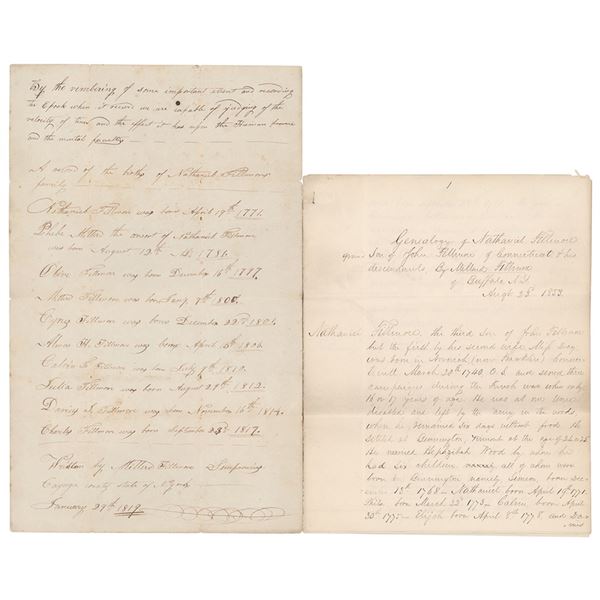 By the numbering of some important event and recording
the Epoch when it record we are capable of judging of the
velocity of time and the effect it has upon the Human
and the mental faculty
A record of the births of Nathaniel Fillmores
family
Nathaniel Fillmore was born April 19th 1771.
Phebe Millard the consort of Nathaniel Fillmore
was born August 12th 1781.
Olive Fillmore was born December 16th 1797.
Millard Fillmore was born Jany 7th 1800.
Cyrus Fillmore was born December 22nd 1801.
Almon H. Fillmore was born April 13th 1806.
Calvin T. Fillmore was born July 9th 1810.
Julia Fillmore was born August 29th 1812.
Darius I. Fillmore was born November 16th 1814.
Charles Fillmore was born September 23d 1817.
Written by Millard Fillmore Sempronius
Cayuga county state of N. York
January 29th 1819.
1
Genealogy of Nathaniel Fillmore
Son of John Fillmore of Connecticut & his
descendants, By Millard Fillmore
of Buffalo N.Y.
Augt 23d 1853.
Nathaniel Fillmore, the third Son of John Fillmore
but the first by his second wife Miss Day
was born in Norwich (now Franklin) Connec-
ticutt March 20th 1740, O.S. and served three
campaigns during the French war when only
16 or 17 years of age. He was at one time
disabled and left by the army in the woods,
where he remained six days without food. He
settled at Bennington, Vermont at the age of 24 or 25
He married Hepzibah Wood by whom he
had six children, all of whom were
born in Bennington namely Simeon, born Dec-
13th 1768 - Nathaniel born April 19th 1771
Philo born March 22d 1773 - Calvin born April
30th 1775 - Elijah born April 8th 1778, and Da-